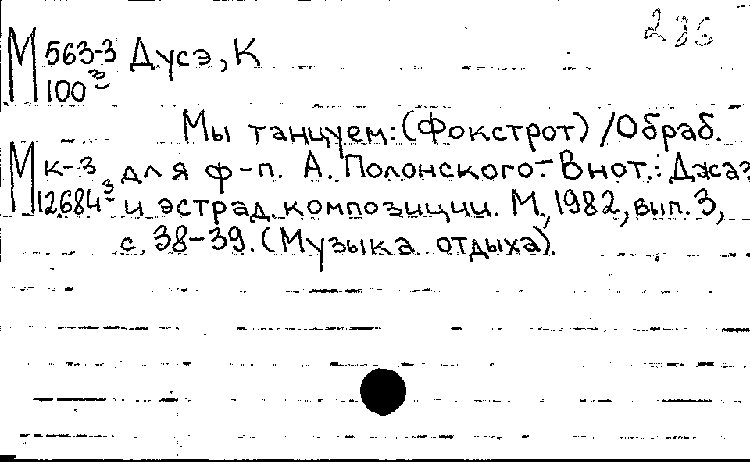 М 563-3 Дусэ, К
100 3
Мы танцуем: (Фокстрот) / Обраб.
М К-3 для ф-п. А. Полонского.- В нот.: Джаз
12684 3 и эстрад. композиции. М., 1982, вып. 3,
с. 38-39. (Музыка отдыха).